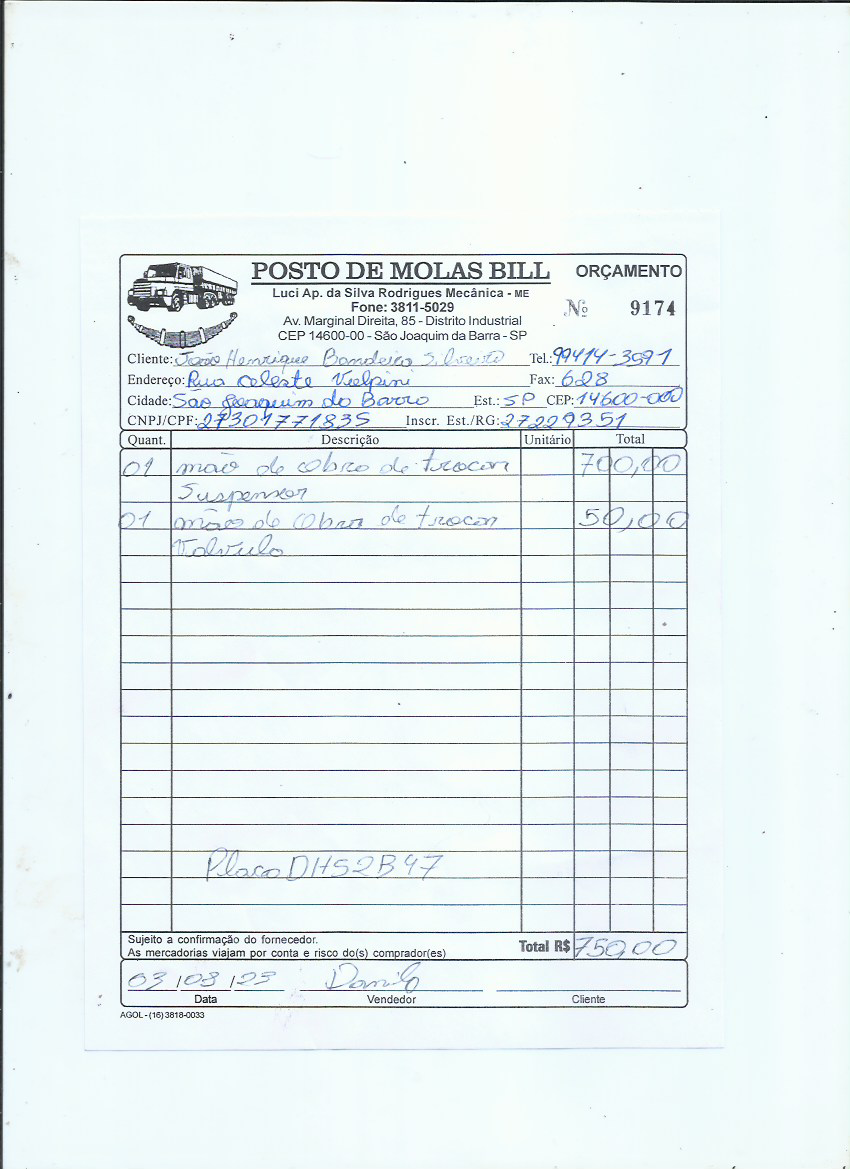 POSTO DE MOLAS BILL ORÇAMENTO
Luci Ap. da Silva Rodrigues Mecânica - ME
Fone: 3811-5029 Nº 9174
Av. Marginal Direita, 85 - Distrito Industrial
CEP 14600-00 - São Joaquim da Barra - SP
Cliente: João Henrique Bandeira Tel.: 99414-3591
Endereço: Rua celeste Fax: 628
Cidade: São Joaquim da Barra Est.: SP CEP: 14600-000
CNPJ/CPF: 27301771835 Inscr. Est./RG: 27229351
Quant. Descrição Unitário Total
01 mão de obra de trocar 700,00
Suspensor
01 mão de Obra de trocar 50,00
Valvula
Placa DHS2B47
Sujeito a confirmação do fornecedor.
As mercadorias viajam por conta e risco do(s) comprador(es) Total R$ 750,00
03/03/23 Danilo
Data Vendedor Cliente
AGOL - (16) 3818-0033